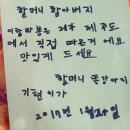 할머니 할아버지
이한라봉은 제주 제주도
에서 직접 따온거 에요
맛있게 드세요
할머니 똥강아지
기현 이가
2019년 1월24일